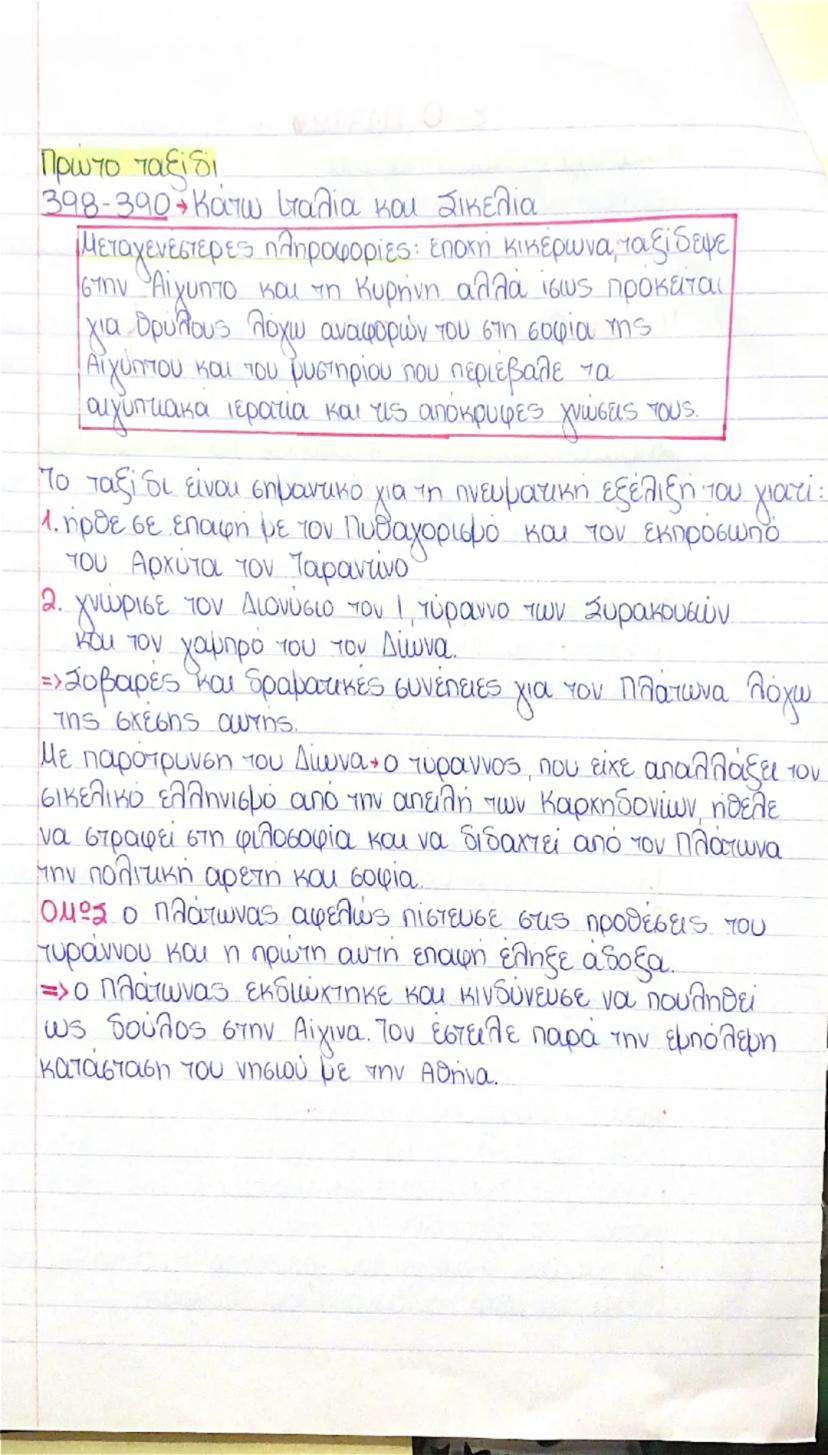 Πρώτο ταξίδι
398-390→Κάτω Ιταλία και Σικελία
Μεταγενέστερες πληροφορίες: εποχή Κικέρωνα, ταξίδεψε
στην Αίγυπτο και τη Κυρήνη αλλά ίσως πρόκειται
για θρύλους λόγω αναφορών του στη σοφία της
Αιγύπτου και του μυστηρίου που περιέβαλε τα
αιγυπτιακά ιερατία και τις απόκρυφες γνώσεις τους.
Το ταξίδι είναι σημαντικό για τη πνευματική εξέλιξή του γιατί:
1. ήρθε σε επαφή με τον Πυθαγορισμό και τον εκπρόσωπό
του Αρχύτα τον Ταραντίνο
2. γνώρισε τον Διονύσιο τον Ι, τύραννο των Συρακουσών
και τον γαμπρό του τον Δίωνα.
=>Σοβαρές και δραματικές συνέπειες για τον Πλάτωνα λόγω
της σχέσης αυτής.
Με παρότρυνση του Δίωνα→ο τύραννος, που είχε απαλλάξει τον
σικελικό ελληνισμό από την απειλή των Καρχηδονίων, ήθελε
να στραφεί στη φιλοσοφία και να διδαχτεί από τον Πλάτωνα
την πολιτική αρετή και σοφία.
ΟΜΩΣ ο Πλάτωνας αφελώς πίστευσε στις προθέσεις του
τυράννου και η πρώτη αυτή επαφή έληξε άδοξα.
=>ο Πλάτωνας εκδιώχτηκε και κινδύνευσε να πουληθεί
ως δούλος στην Αίγινα. Τον έστειλε παρά την εμπόλεμη
κατάσταση του νησιού με την Αθήνα.